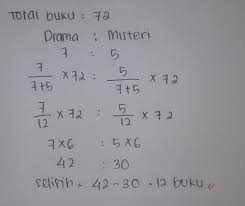 Total buku : 72
Drama : Misteri
7 : 5
7/7+5 x 72 : 5/7+5 x 72
7/12 x 72 : 5/12 x 72
7x6 : 5x6
42 : 30
selisih = 42-30 = 12 buku